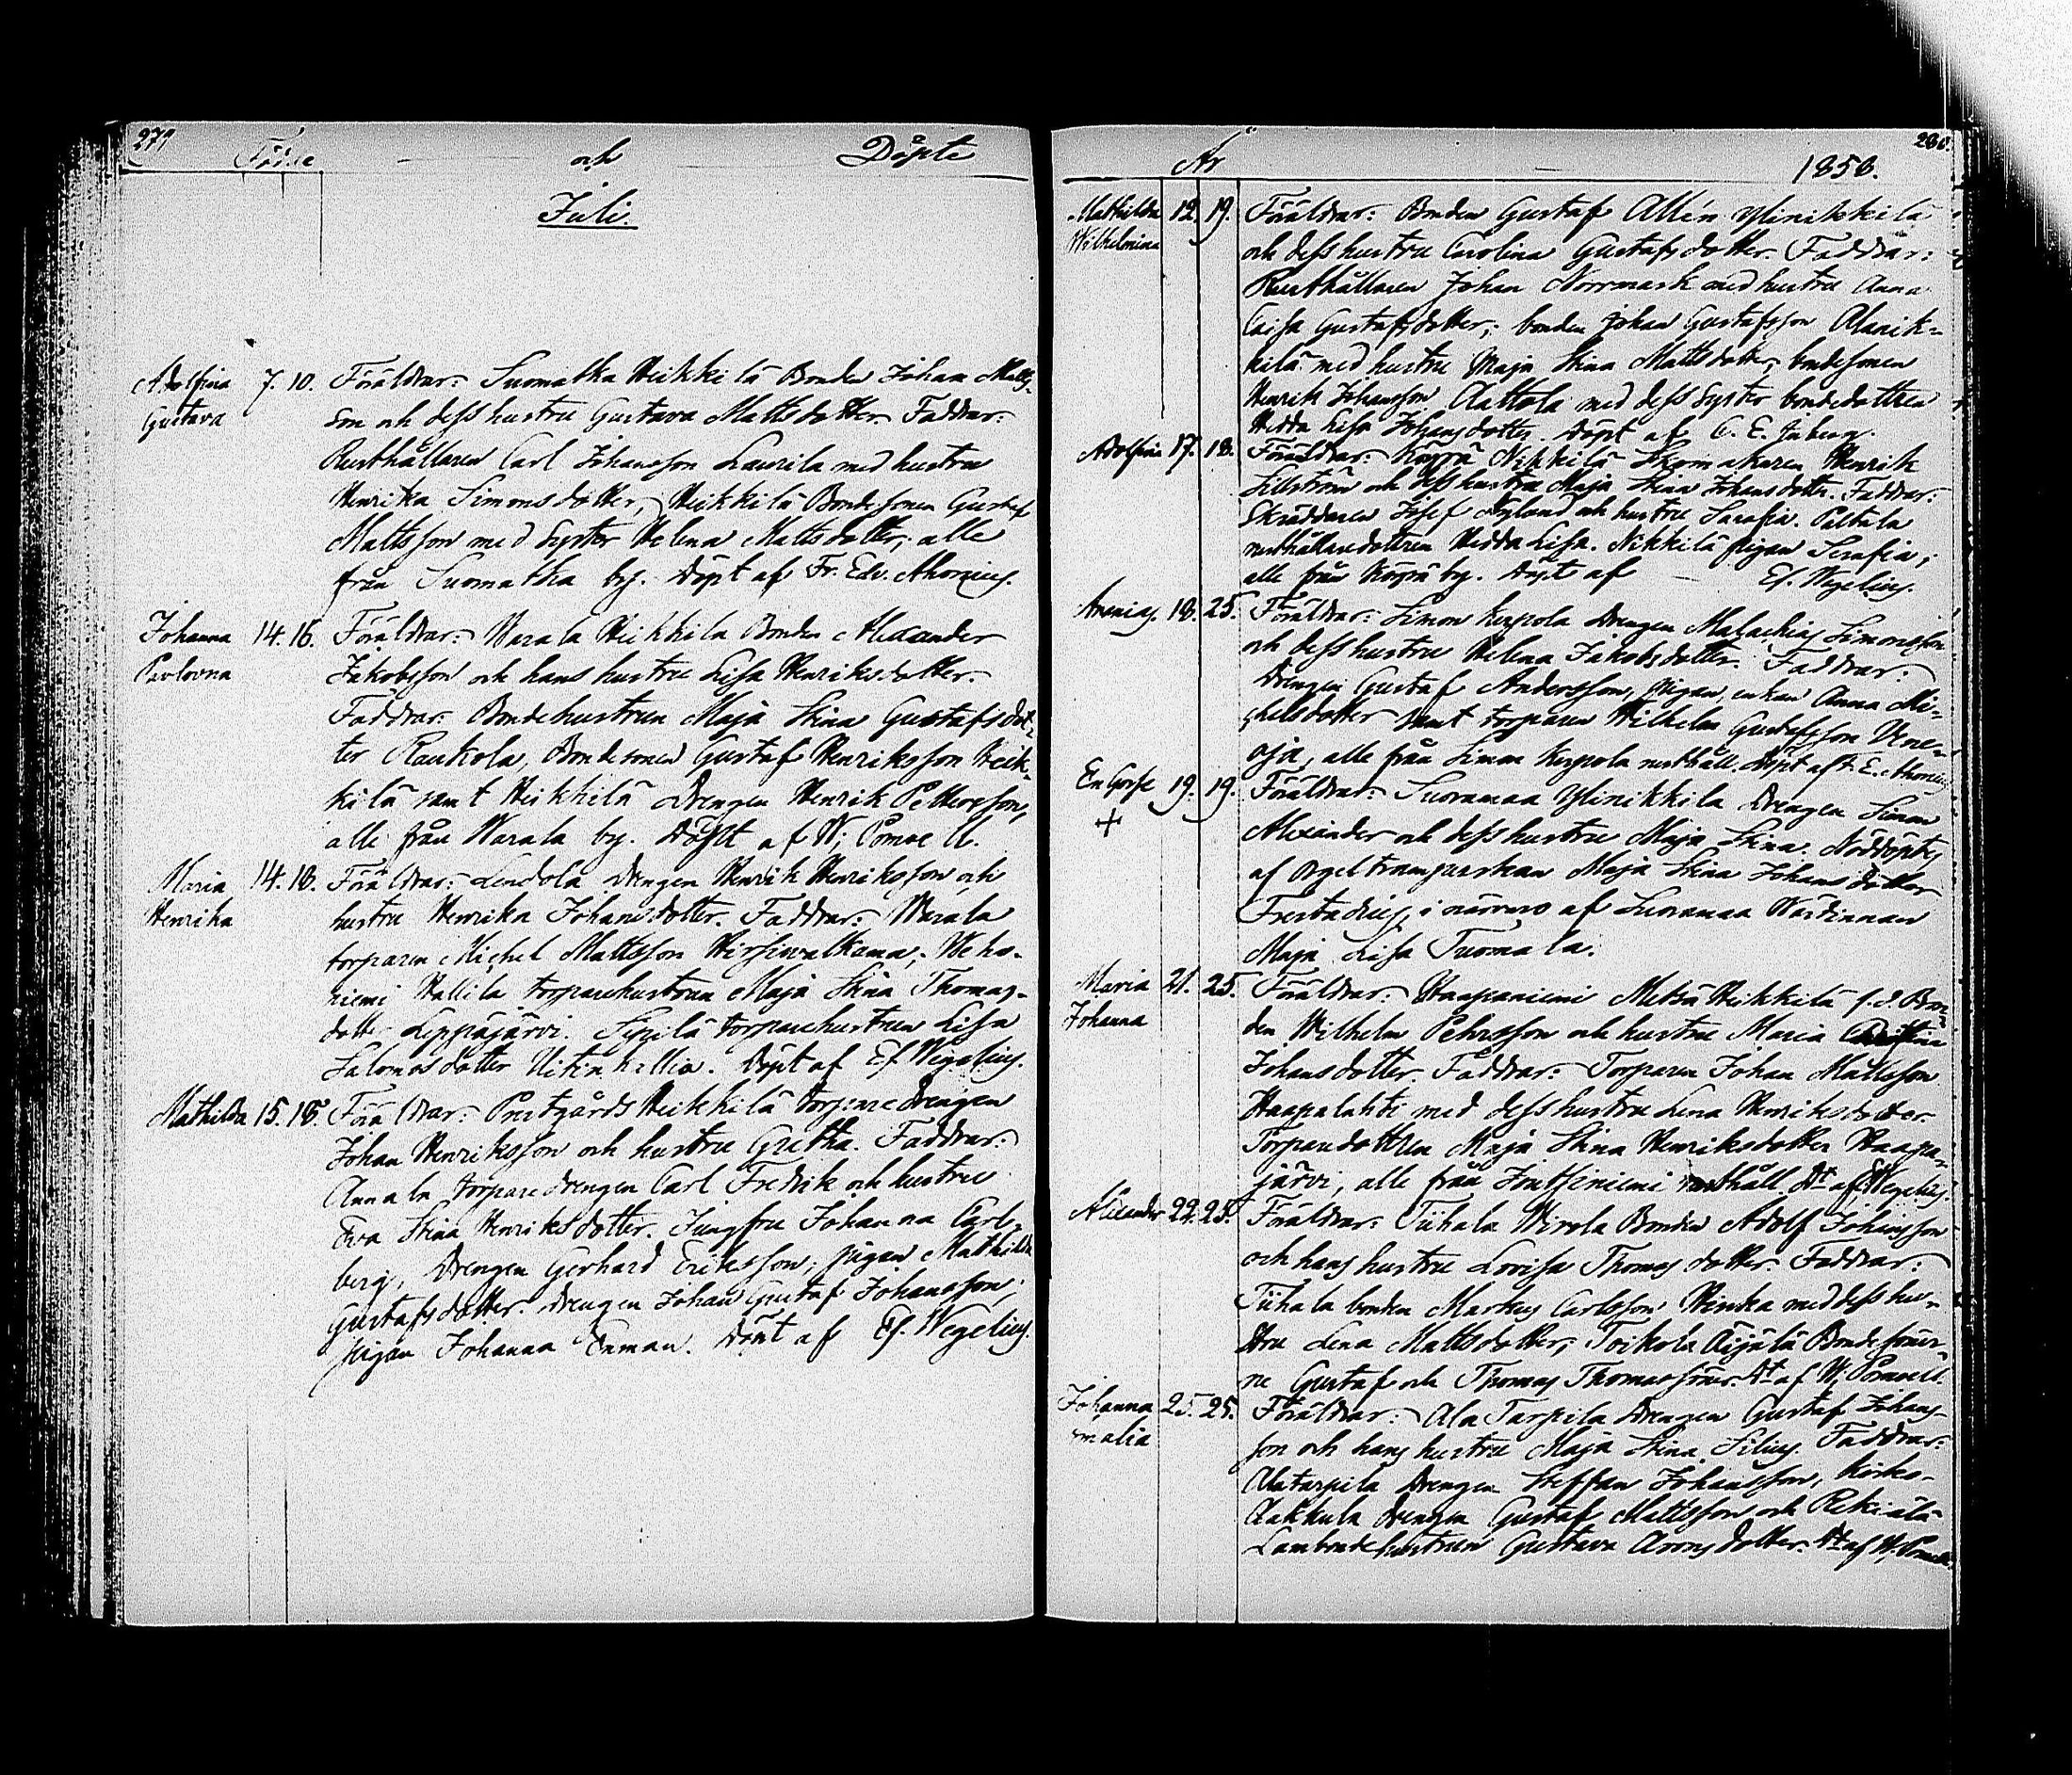 279
Födde och Döpte
Juli.
Adolfina 7. 10. Föräldrar: Suomatka Heikkilä Bonden Johan Matts-
Gustava son och dess hustru Gustava Mattsdotter. Faddrar:
Rusthållaren Carl Johansson Laurila med hustru
Henrika Simonsdotter, Heikkilä Bondesonen Gustaf
Mattsson med syster Helena Mattsdotter, alle
från Suomatka by. Döpt af Fr. Edv. Ahonius.
Johanna 14. 16. Föräldrar: Warala Heikkilä Bonden Alexander
Pavlovna Jakobsson och hans hustru Lisa Henriksdotter.
Faddrar: Bondehustrun Maja Stina Gustafsdot-
ter Raukola, Bondesonen Gustaf Henriksson Heik-
kilä samt Heikkilä Drengen Henrik Pettersson,
alle från Warala by. Döpt af W.
Maria 14. 18. Föräldrar: Lendola Drengen Henrik Henriksson och
Henrika hustru Henrika Johansdotter. Faddrar: Warala
torparen Michel Mattsson Hirsiwalkama, Weho-
niemi Hallila torparehustrun Maja Stina Thomas-
dotter Leppäjärvi. Sipilä torparehustrun Lisa
Salomosdotter Uitinkallio. Döpt af Ef Wegelius.
Mathilda 15. 18. Föräldrar: Prestgårds Heikkilä torparedrengen
Johan Henriksson och hustru Gretha. Faddrar:
Annala torparedrengen Carl Fredrik och hustru
Eva Stina Henriksdotter. Jungfru Johanna Carl-
berg, Drengen Gerhard Eriksson, pigan Mathilda
Gustafsdotter. drengen Johan Gustaf Johansson,
pigan Johanna Enman. Döpt af Ef. Wegelius.
280.
År 1858.
Mathilda 12. 19. Föräldrar: Bonden Gustaf Allén Ylinikkilä
Wilhelmina och dess hustru Carolina Gustafsdotter. Faddrar:
Rusthållaren Johan Norrmark med hustru Anna
Caisa Gustafsdotter; bonden Johan Gustafsson Alanik-
kilä med hustru Maja Stina Mattsdotter, bondesonen
Henrik Johansson Aattola med dess syster bondedottren
Hedda Lisa Johansdotter. Döpt af C. E.
Adolfina 17. 18. Föräldrar: Köyrä Nikkilä Skomakaren Henrik
Sillström och dess hustru Maja Stina Johansdotter. Faddrar:
Skräddaren Josef Nylund och hustru Sarafia. Paltala
rusthållaredottren Hedda Lisa. Nikkilä pigan Serafia;
alle från Köyrä by. Döpt af Ef. Wegelius.
Ananias. 18. 25. Föräldrar: Simon Kerpola Drengen Malachias Simonsson
och dess hustru Helena Jakobsdotter. Faddrar:
Drengen Gustaf Andersson, pigan, enkan Anna Mi-
chelsdotter samt torparen Wilhelm Gustafsson Vene-
oja, alle från Simon Kerpola rusthåll. Döpt af Fr. E. Ahonius
En Gosse 19. 19. Föräldrar: Suoramaa Ylinikkilä Drengen Simon
+ Alexander och dess hustru Maja Stina. Nöddöptes
af Orgeltramperskan Maja Stina Johansdotter
i närvaro af Suoramaa Wärdinnan
Maja Lisa Tuomala.
Maria 21. 25. Föräldrar: Haapaniemi Metsä Heikkilä f.d. Bon-
Johanna den Wilhelm Pehrsson och hustru Maria Christina
Johansdotter. Faddrar: Torparen Johan Mattsson
Haapalahti med dess hustru Lena Henriksdotter.
Torparedottren Maja Stina Henriksdotter Haapa-
järvi, alle från Jontsiniemi rusthåll. Dt af Ef Wegelius.
Alexander 22. 25. Föräldrar: Tiihala Wirola Bonden Adolf Johansson
och hans hustru Lovisa Thomasdotter. Faddrar:
Tiihala bonden Markus Carlsson Heinka med dess hu-
stru Lena Mattsdotter; Toikola Äijälä Bondesöner-
ne Gustaf och Thomas Thomassöner. Dt af W.
Johanna 25. 25. Föräldrar: Ala Tarpila Drengen Gustaf Johans-
malia son och hans hustru Maja Stina Silius. Faddrar:
Alatarpila Drengen Steffan Johansson, Kirko-
Aakkula Drengen Gustaf Mattsson och Rekiälä
Lambondehustrun Gustava Aronsdotter. Dt af W.